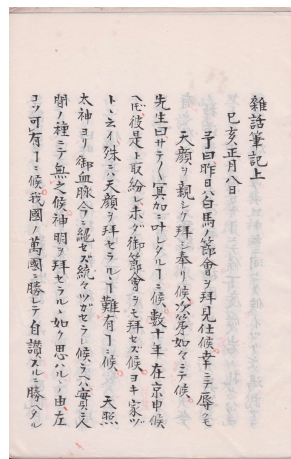 雜話筆記上
己亥正月八日
予曰昨日ハ白馬ノ節會ヲ拜見仕候幸ニテ辱クモ
天顔ヲ親シク拜シ奉リ候次第如々ニテ候
先生曰サテ〱冥加ニ叶レタルヿニ候數十年在京申候
ヘ𪜈彼是ト取紛レホダ御節會ヲモ拜セズ候ヨキ家ヅ
トト云イ殊ニハ天顔ヲ拜セラルヽヿ難有ヿニ候天照
太神ヨリ御血脉今ニ絕セズ續々ツガセラレ候ヘハ實ニ人
間ノ種ニテ無之候神明ヲ拜セラルヽ如ク思ハルヽ由左
コソ可有ヿニ候我國ノ萬國ニ勝レテ自讃スルニ勝ヘタル